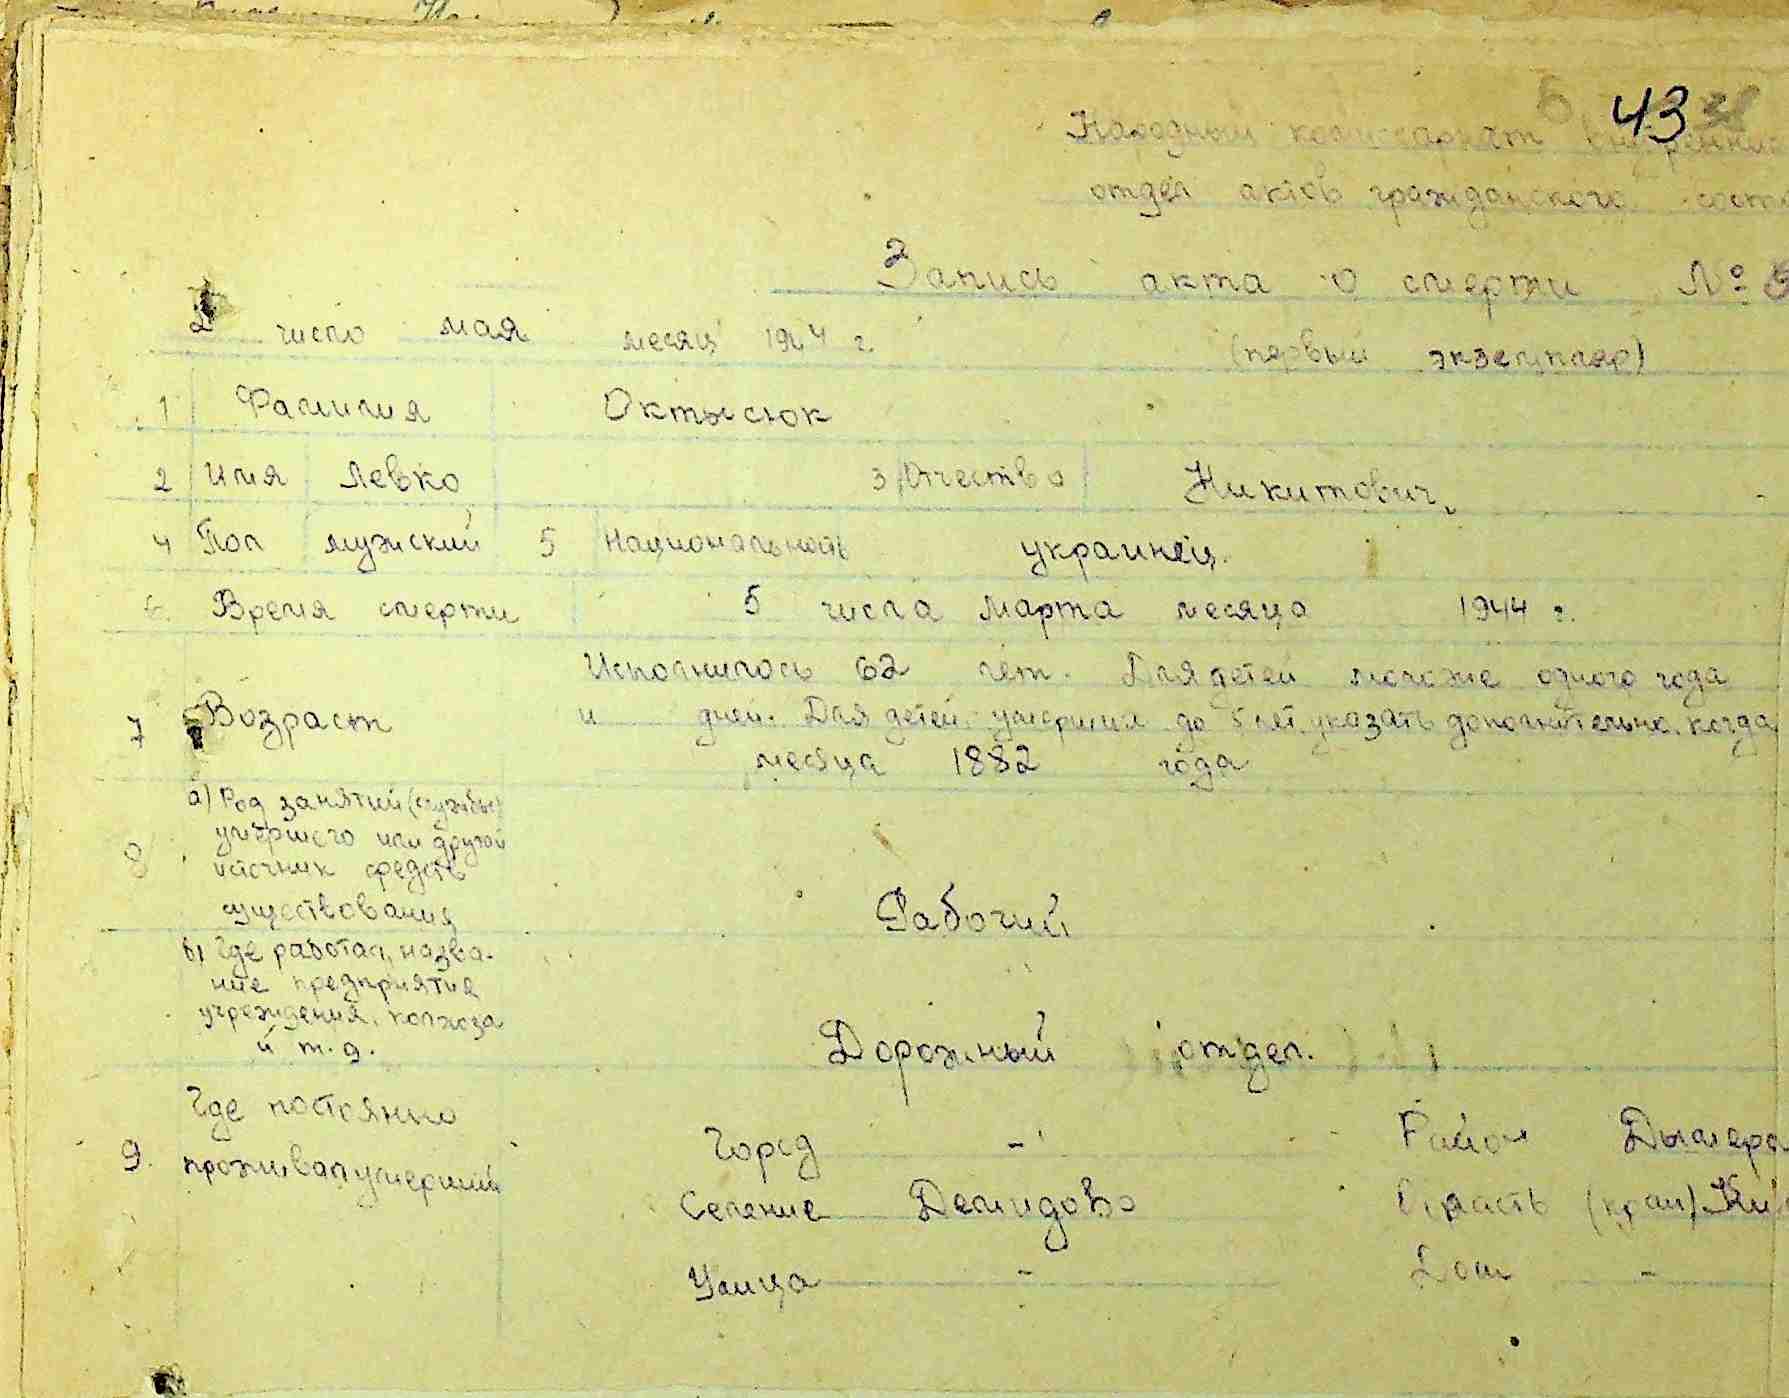 43
Народный комиссариат внутренних
отдел актов гражданского сост
Запись акта о смерти №
2 число мая месяц 1944 г. (первый экземпляр)
1 Фамилия Октысюк
2 Имя Левко 3 Отчество Никитович
4 Пол мужский 5 Национальность украинец.
6 Время смерти 5 числа Марта месяца 1944 г.
Исполнилось 62 лет. Для детей моложе одного года
7 Возраст и дней. Для детей, умерших до 5 лет, указать дополнительно, когда
месяца 1882 года
а) Род занятий (службы)
8 умершего или другой
источник средств
существования Рабочий
б) Где работал, назва-
ние предприятия
учреждения, колхоза
и т.д. Дорожный отдел.
Где постоянно
9. проживал умерший
Город - Район Дымерс
Селение Демидово Область (край) Ки
Улица - Дом -